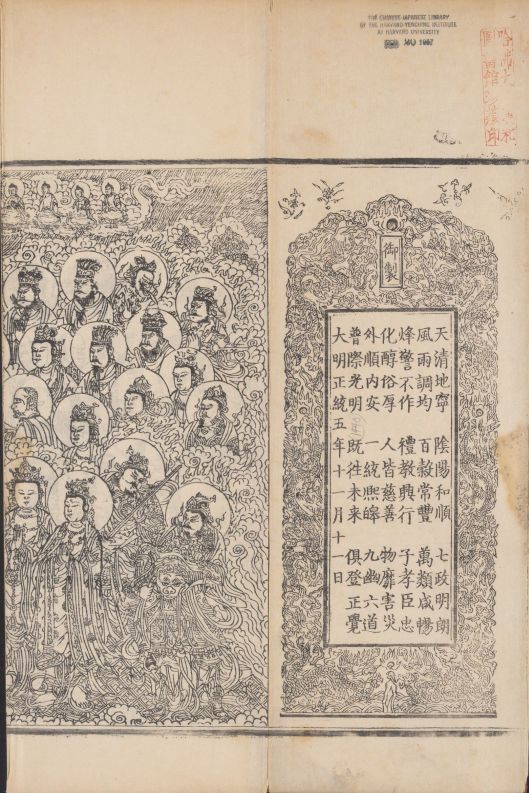 THE CHINESE-JAPANESE LIBRARY
OF THE HARVARD-YENCHING INSTITUTE
AT HARVARD UNIVERSITY
御製
天清地寧　陰陽和順　七政明朗
風雨調均　百穀常豐　萬類咸暢
烽警不作　禮教興行　子孝臣忠
化醇俗厚　人皆慈善　物靡害災
外順內安　一統熙皞　九幽六道
普際光明　既往未來　俱登正覺
大明正統五年十一月十一日